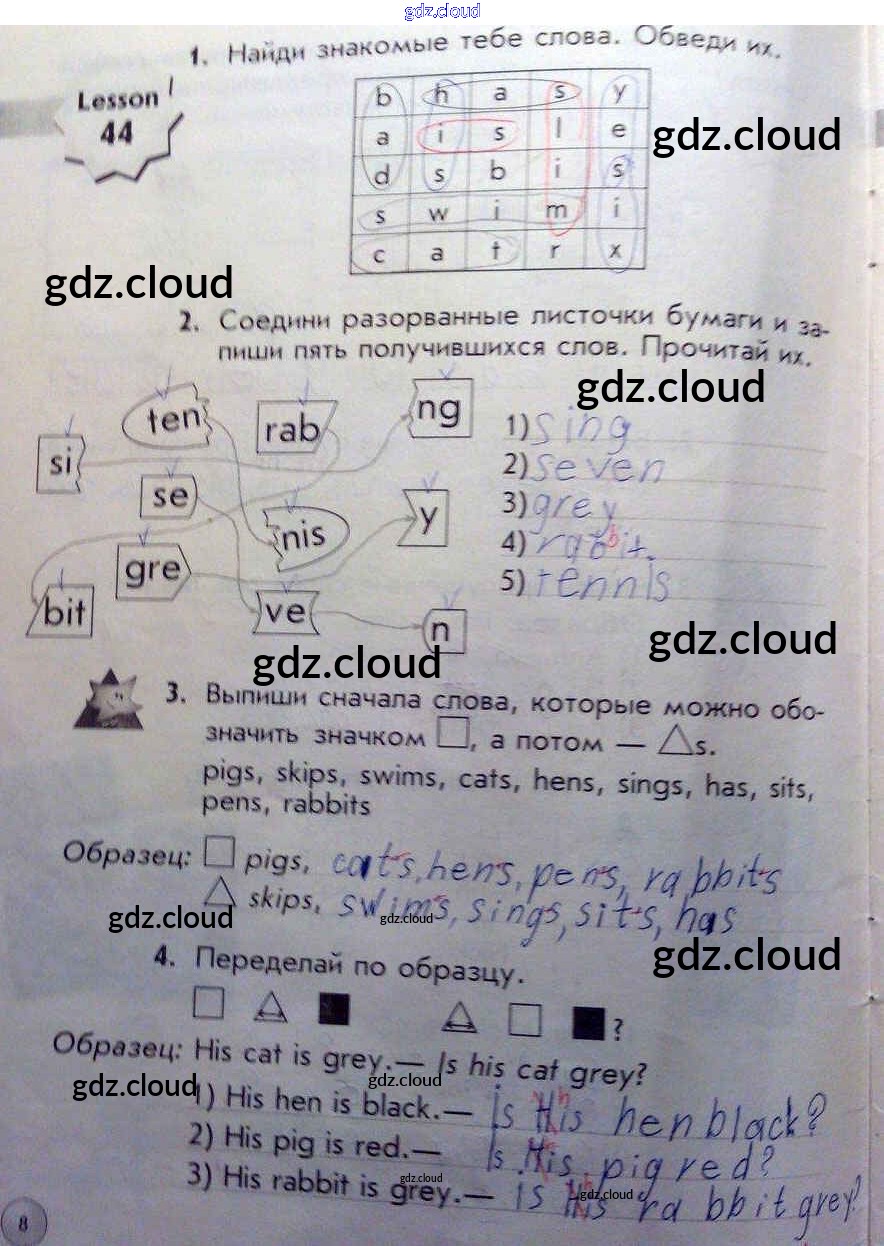 gdz.cloud
1. Найди знакомые тебе слова. Обведи их.
Lesson
44
b h a s y
a i s l e
d s b i s
s w i m i
c a t r x
gdz.cloud
gdz.cloud
2. Соедини разорванные листочки бумаги и за-
пиши пять получившихся слов. Прочитай их.
gdz.cloud
ten
rab
ng
si
se
nis
y
gre
bit
ve
n
1) sing
2) seven
3) grey
4) rabbit.
5) tennis
gdz.cloud
gdz.cloud
3. Выпиши сначала слова, которые можно обо-
значить значком □, а потом — △s.
pigs, skips, swims, cats, hens, sings, has, sits,
pens, rabbits
Образец: □ pigs, cats, hens, pens, rabbits
△ skips, swims, sings, sits, has
gdz.cloud
gdz.cloud
gdz.cloud
4. Переделай по образцу.
?
Образец: His cat is grey.— Is his cat grey?
gdz.cloud
gdz.cloud
1) His hen is black.— Is His hen black?
2) His pig is red.— Is His pig red?
3) His rabbit is grey.— Is His rabbit grey?
gdz.cloud
gdz.cloud
8